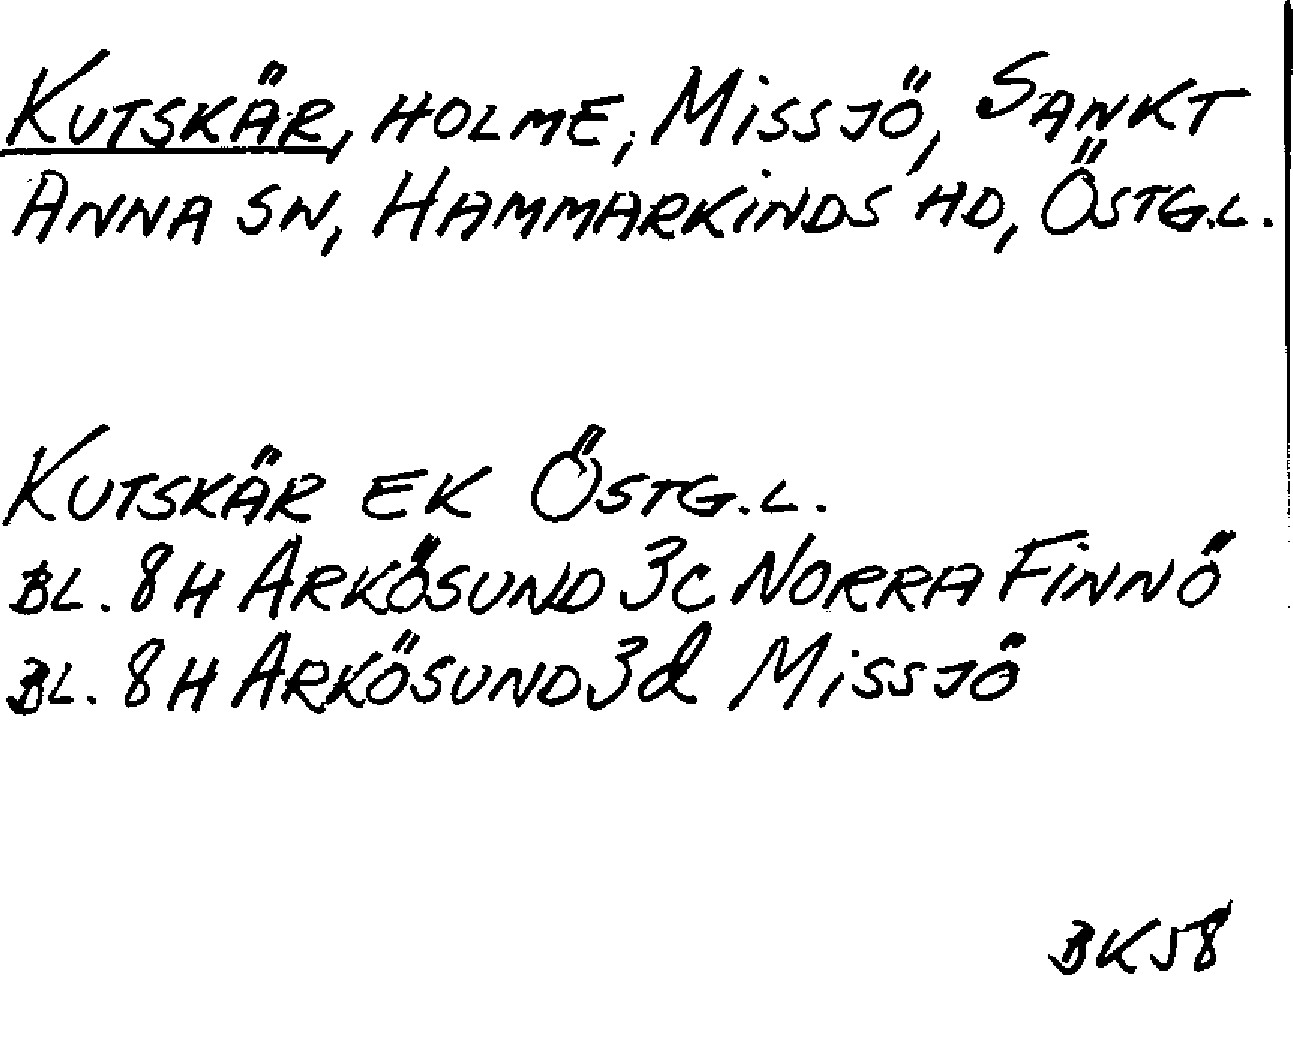 Kutskär, holme, Missjö, Sankt
Anna sn, Hammarkinds hd, Östg.l.
Kutskär EK Östg.l.
Bl. 8H Arkösund 3c Norra Finnö
Bl. 8H Arkösund 3d Missjö
BK58